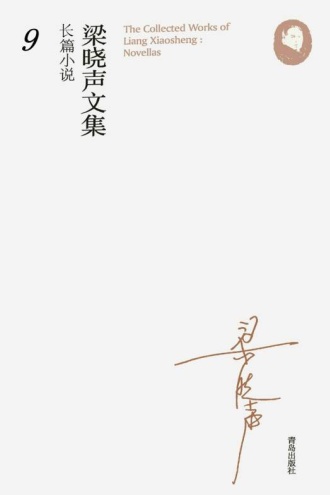 9
梁晓声文集
长篇小说
The Collected Works of
Liang Xiaosheng :
Novellas
梁晓声
青岛出版社